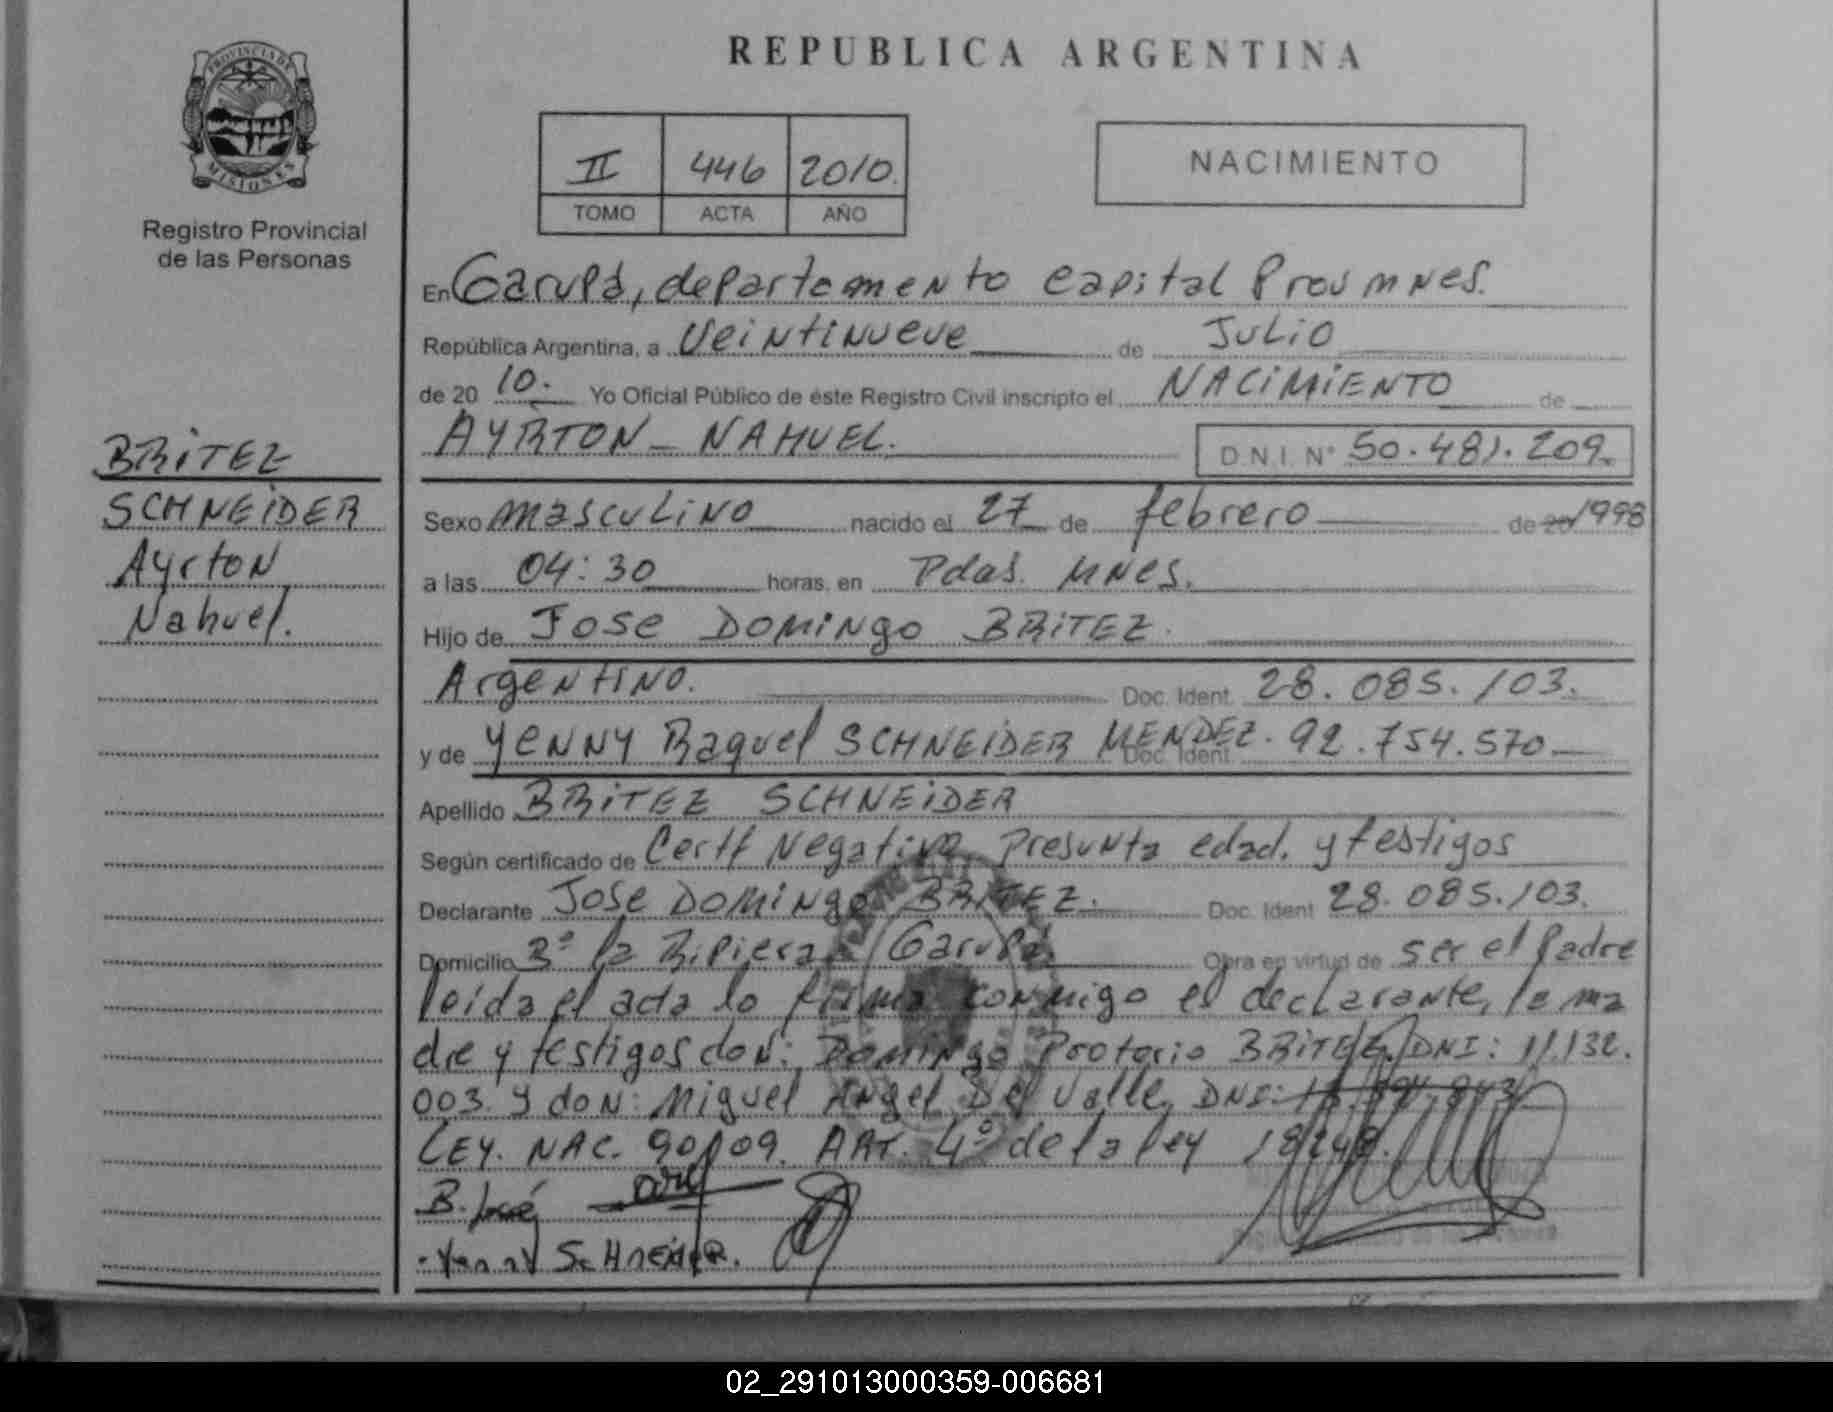 PROVINCIA DE
MISIONES
Registro Provincial
de las Personas
BRITEZ
SCHNEIDER
Ayrton
Nahuel.
REPUBLICA ARGENTINA
II 446 2010.
TOMO ACTA AÑO
NACIMIENTO
En Garupá, departamento capital Prov mnes.
República Argentina, a Veintinueve de Julio
de 20 10. Yo Oficial Público de éste Registro Civil inscripto el NACIMIENTO de
AYRTON - NAHUEL. D.N.I. N° 50.481.209.
Sexo masculino nacido el 27 de febrero de 20/1998
a las 04:30 horas, en Pdas. Mnes.
Hijo de JOSE DOMINGO BRITEZ.
Argentino. Doc. Ident. 28.085.103.
y de YENNY Raquel SCHNEIDER MENDEZ. Doc. Ident. 92.754.570
Apellido BRITEZ SCHNEIDER
Según certificado de Certf Negativo, Presunta edad. y testigos
Declarante JOSE DOMINGO BRITEZ. Doc. Ident 28.085.103.
Domicilio B° la Ripiera Garupá Obra en virtud de ser el Padre
leída el acta lo firma conmigo el declarante, la ma
dre y testigos don: Domingo Protacio BRITEZ, DNI: 11.132.
003. y don: Miguel Angel Del Valle, DNI:
LEY. NAC. 90/09. ART. 4° de la ley 18248.
B. José
Yenny SCHNEIDER.
02_291013000359-006681